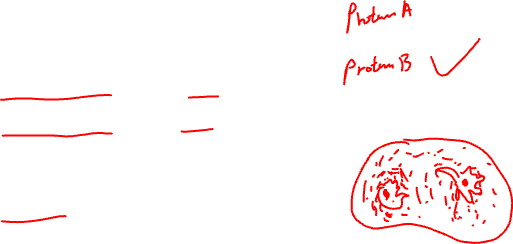 Protein A
Protein B